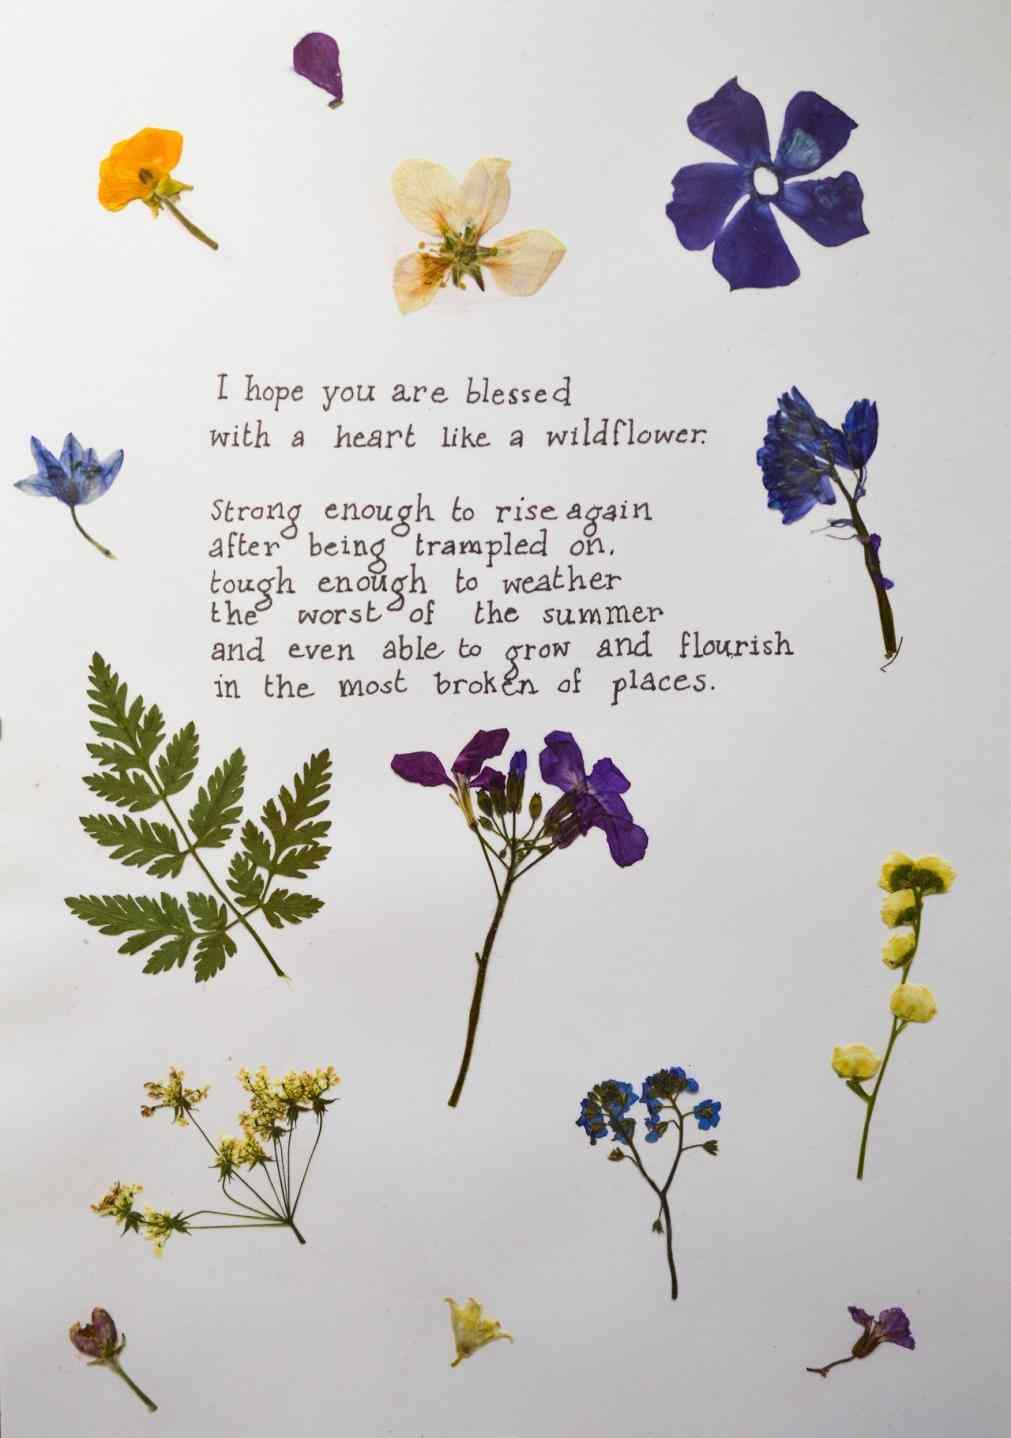 I hope you are blessed
with a heart like a wildflower.
Strong enough to rise again
after being trampled on,
tough enough to weather
the worst of the summer
and even able to grow and flourish
in the most broken of places.